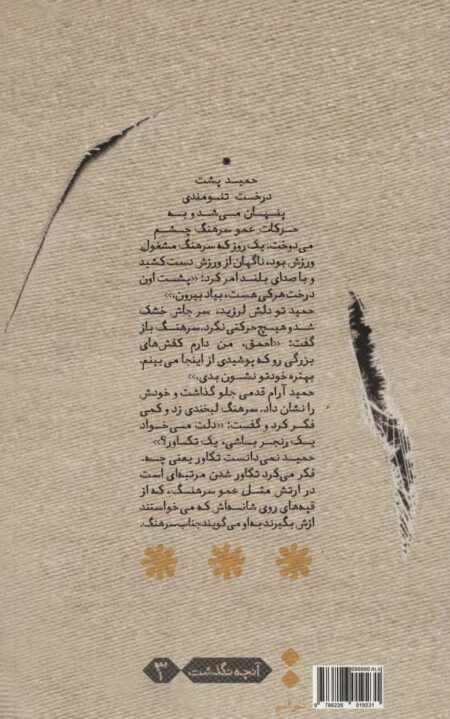 *
حمید پشت
درخت تنومندی
پنهان می‌شد و به
حرکات عمو سرهنگ چشم
می‌دوخت. یک روز که سرهنگ مشغول
ورزش بود، ناگهان از ورزش دست کشید
و با صدای بلند امر کرد: «پشت اون
درخت هرکی هست، بیاد بیرون.»
حمید تو دلش لرزید، سر جاش خشک
شد و هیچ حرکتی نکرد. سرهنگ باز
گفت: «احمق، من دارم کفش‌های
بزرگی رو که پوشیدی از اینجا می‌بینم.
بهتره خودتو نشون بدی.»
حمید آرام قدمی جلو گذاشت و خودش
را نشان داد. سرهنگ لبخندی زد و کمی
فکر کرد و گفت: «دلت می‌خواد
یک رنجر باشی، یک تکاور؟»
حمید نمی‌دانست تکاور یعنی چه.
فکر می‌کرد تکاور شدن مرتبه‌ای است
در ارتش مثل عمو سرهنگ، که از
قپه‌های روی شانه‌اش که می‌خواستند
ازش بگیرند به او می‌گویند جناب سرهنگ.
آنچه نگذشت
690000 RLS
9 786226 019231